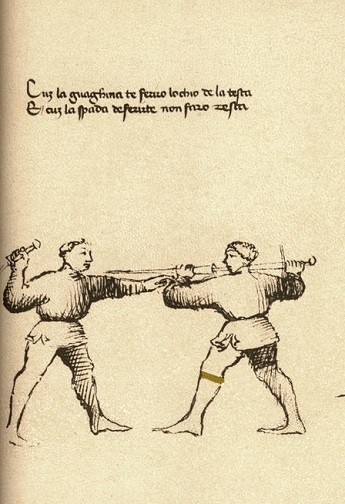 Cuz la guaghina te fervo lochio de la testa
E cuz la spada deferirte non faro resta